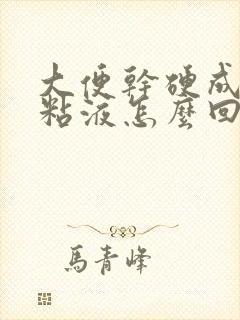 大便幹硬成
粘液怎麼回
馬青峰